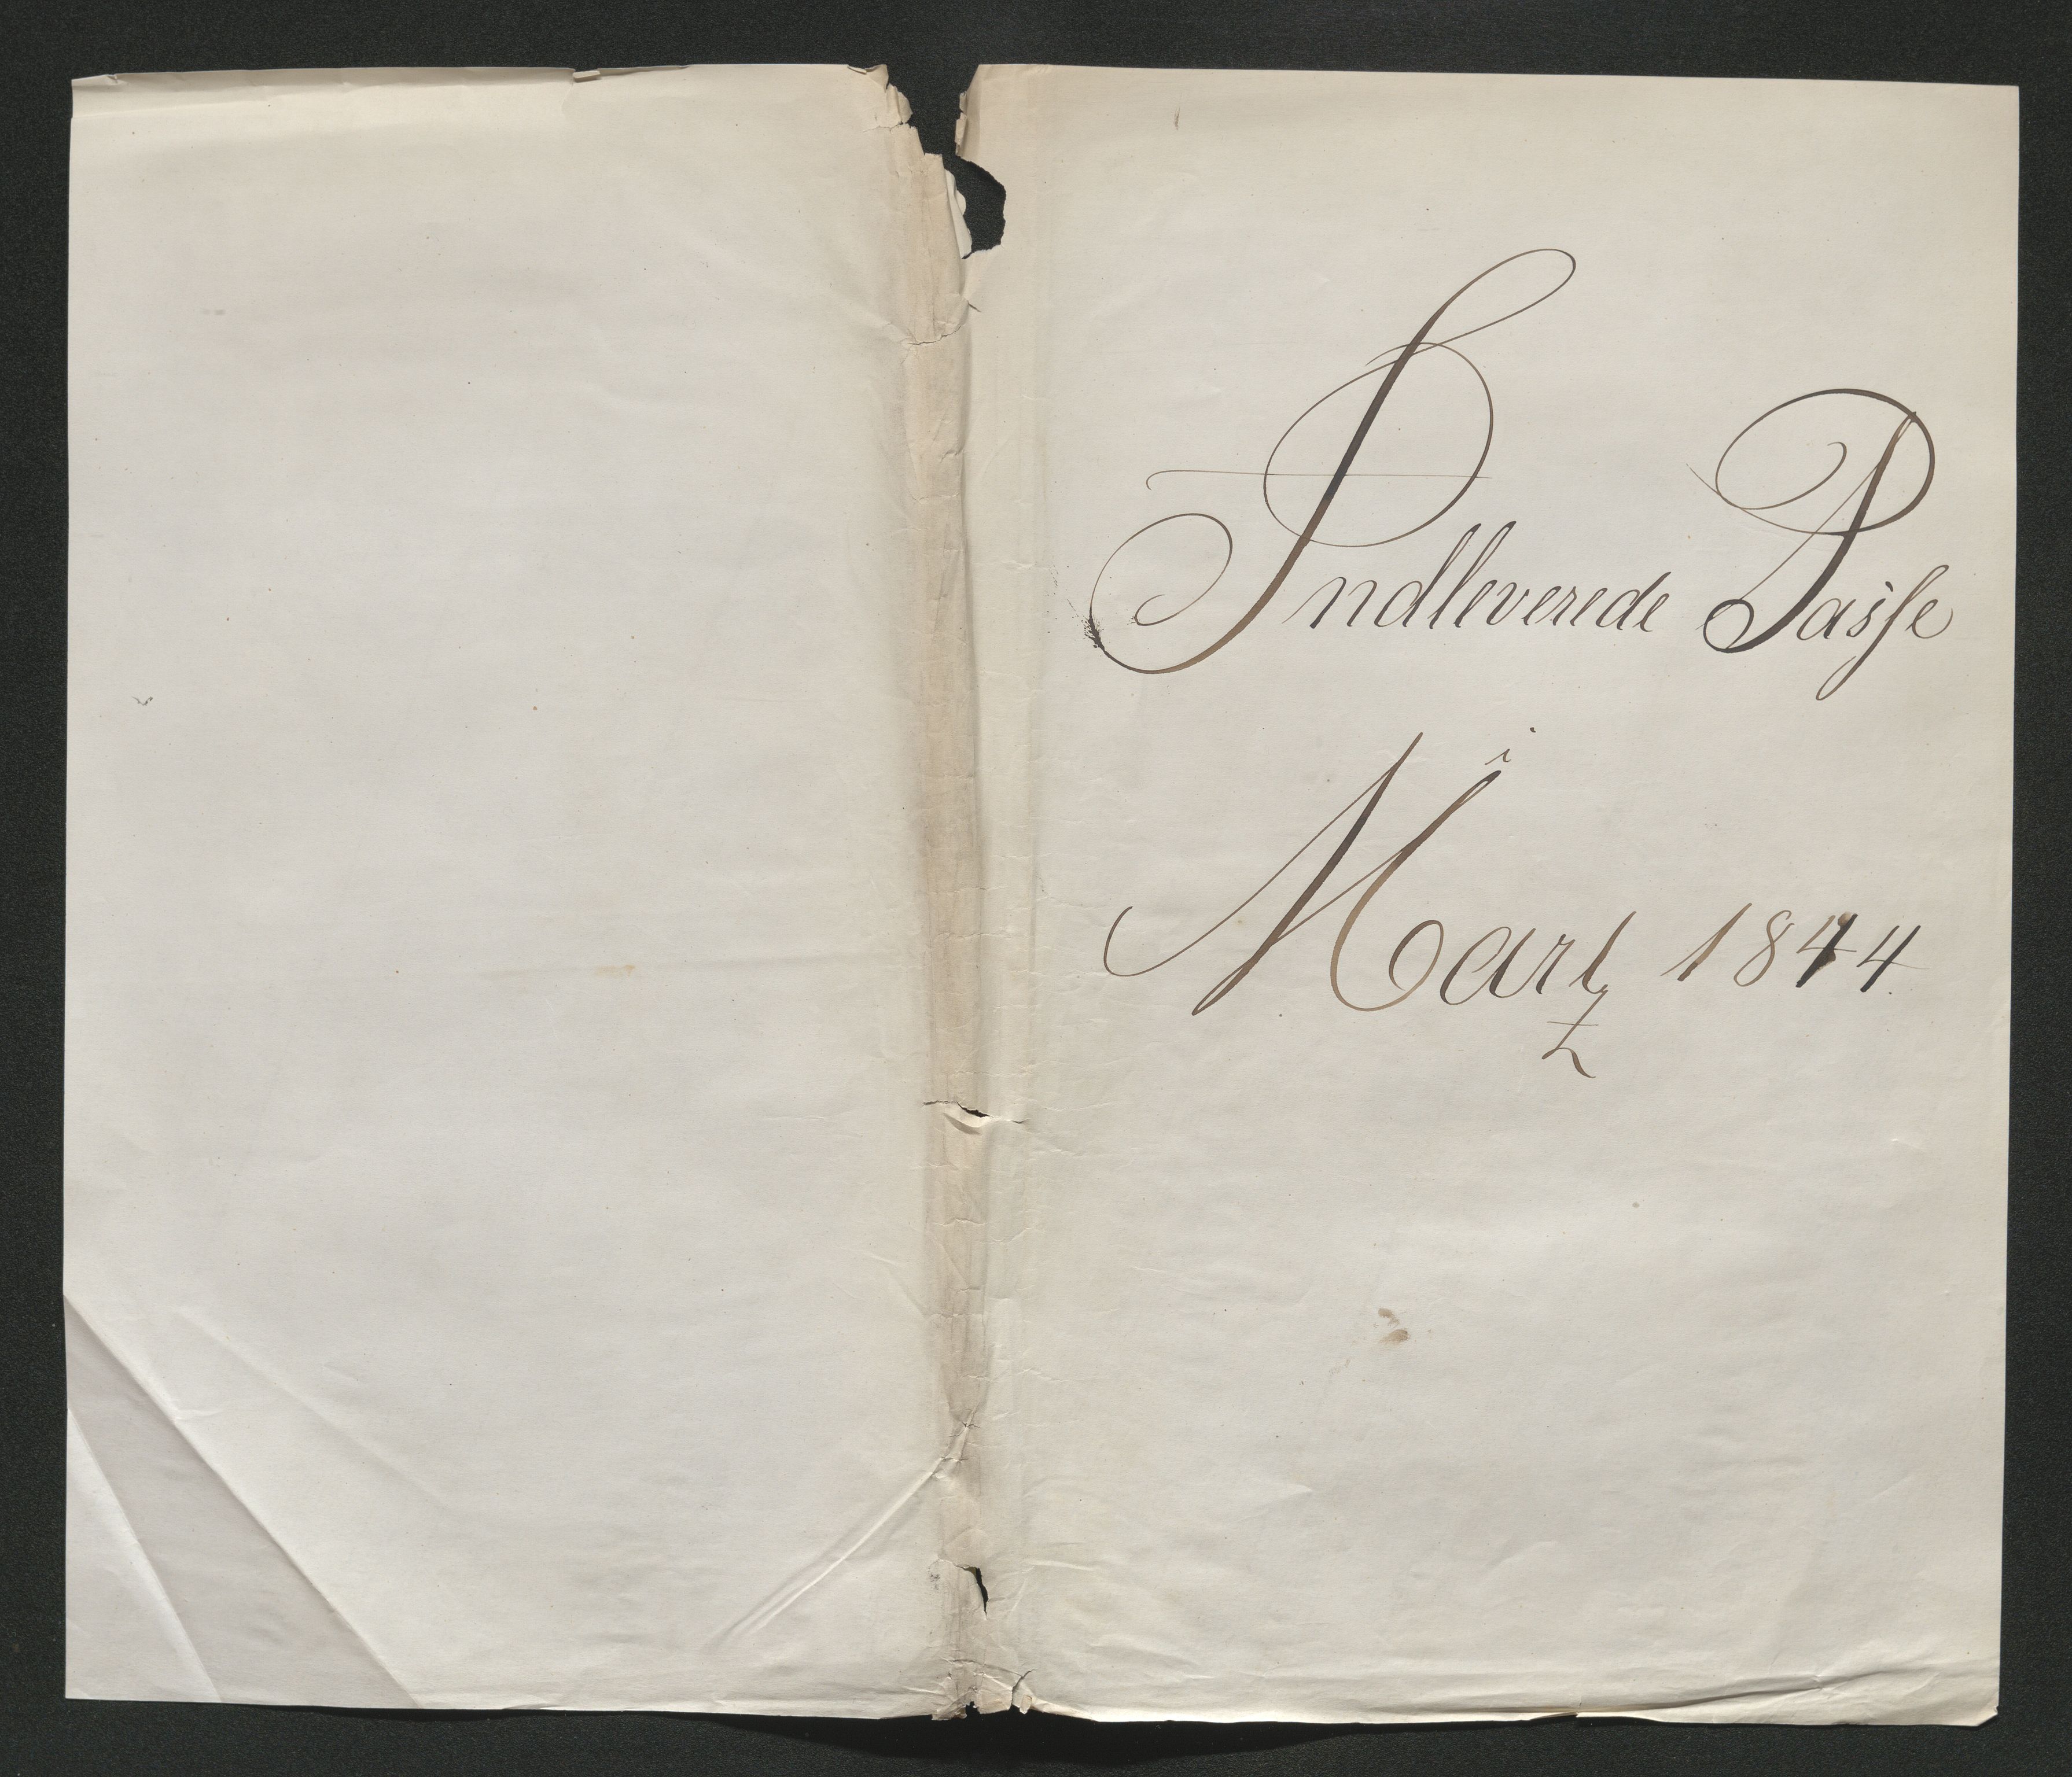 Indleverede Passe
i
Martz 1844